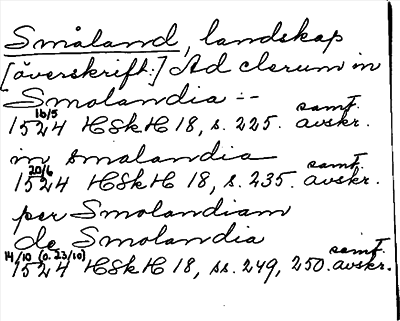 Småland, landskap
[överskrift:] Ad clerum in
Smolandia --
16/5 samt.
1524 HSkH 18, s. 225. avskr.
in smalandia
20/6 samt.
1524 HSkH 18, s. 235. avskr.
per Smolandiam
de Smolandia
14/10 (o. 23/10) samt.
1524 HSkH 18, ss. 249, 250. avskr.